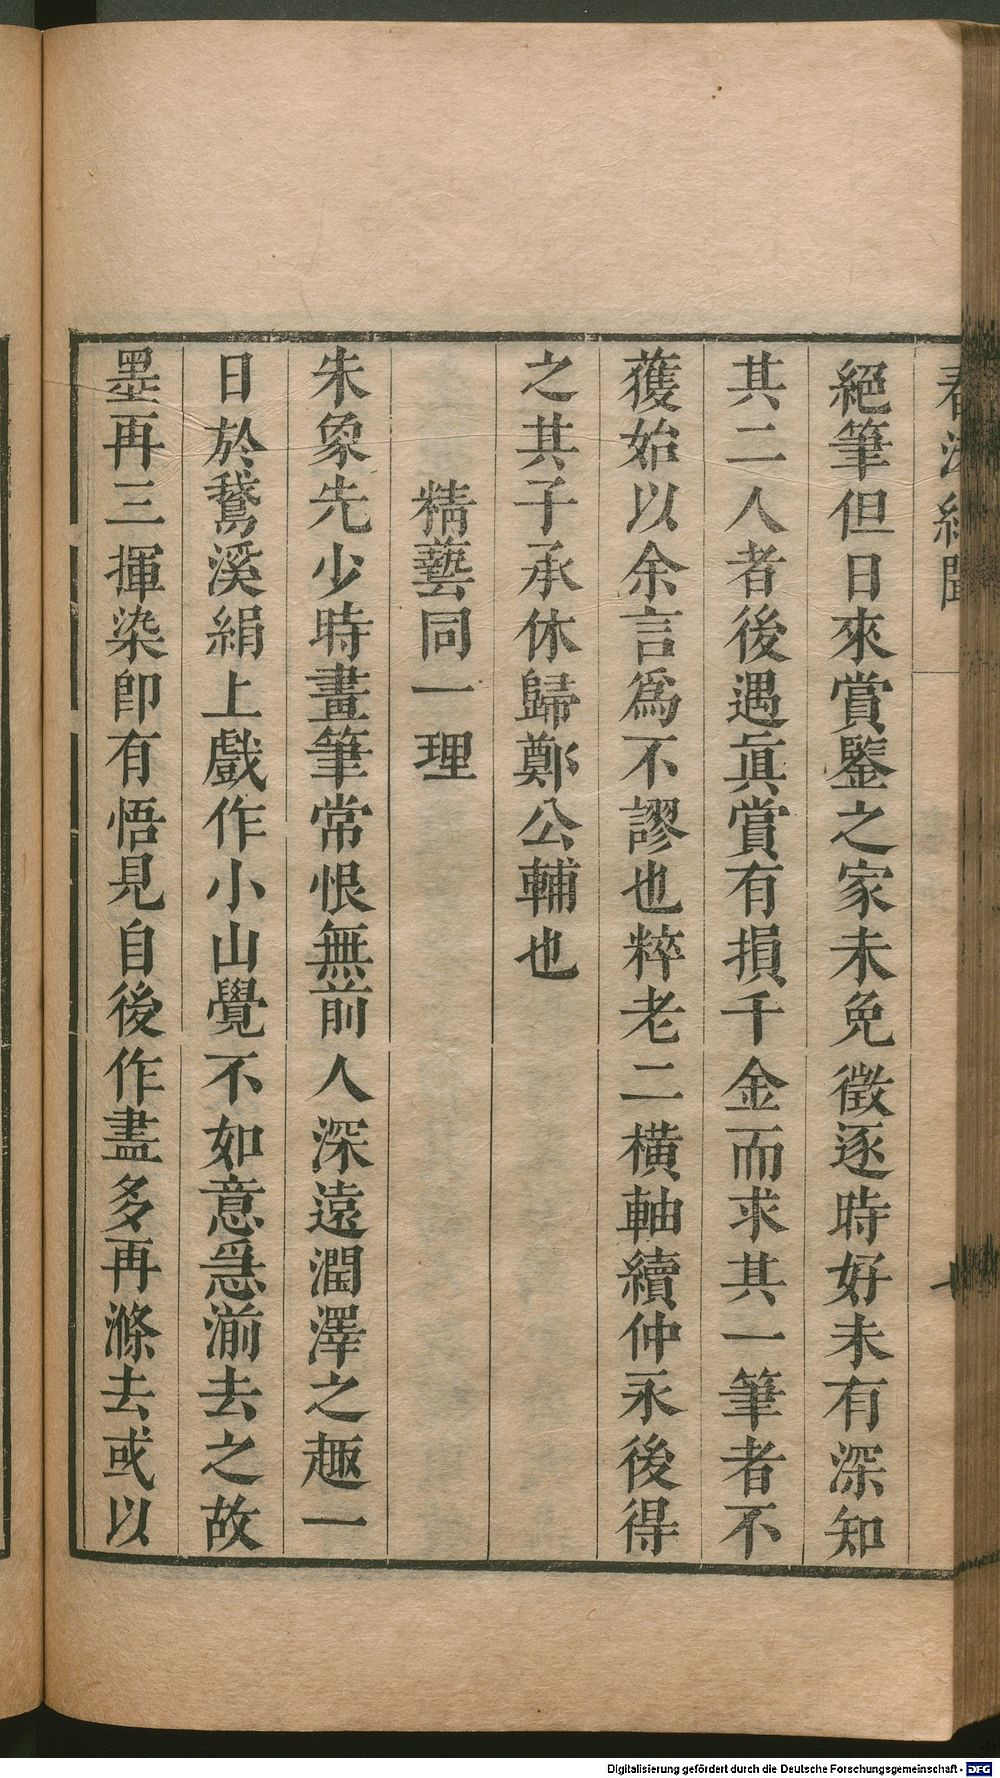 春渚紀聞
絕筆但日來賞鑒之家未免徵逐時好未有深知
其二人者後遇眞賞有損千金而求其一筆者不
獲始以余言爲不謬也粹老二橫軸續仲永後得
之其子承休歸鄭公輔也
精藝同一理
朱象先少時畫筆常恨無前人深遠潤澤之趣一
日於鵞溪絹上戲作小山覺不如意急湔去之故
墨再三揮染卽有悟見自後作畫多再滌去或以
Digitalisierung gefördert durch die Deutsche Forschungsgemeinschaft - DFG